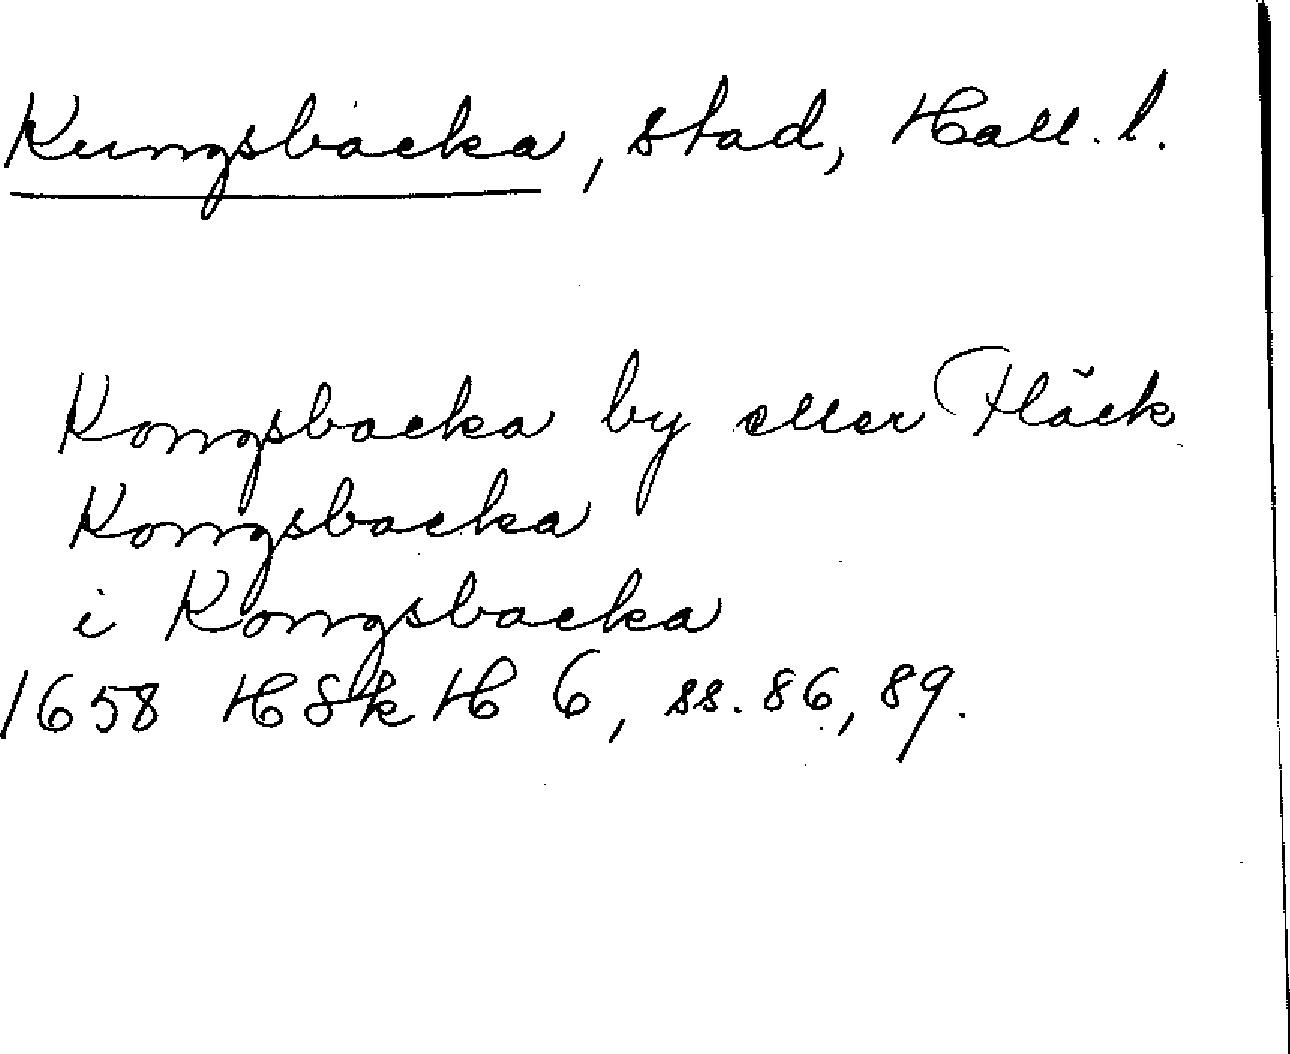 Kungsbacka, stad, Hall. l.
Kongsbacka by eller Fläck
Kongsbacka
i Kongsbacka
1658 HSkH 6, ss. 86, 89.